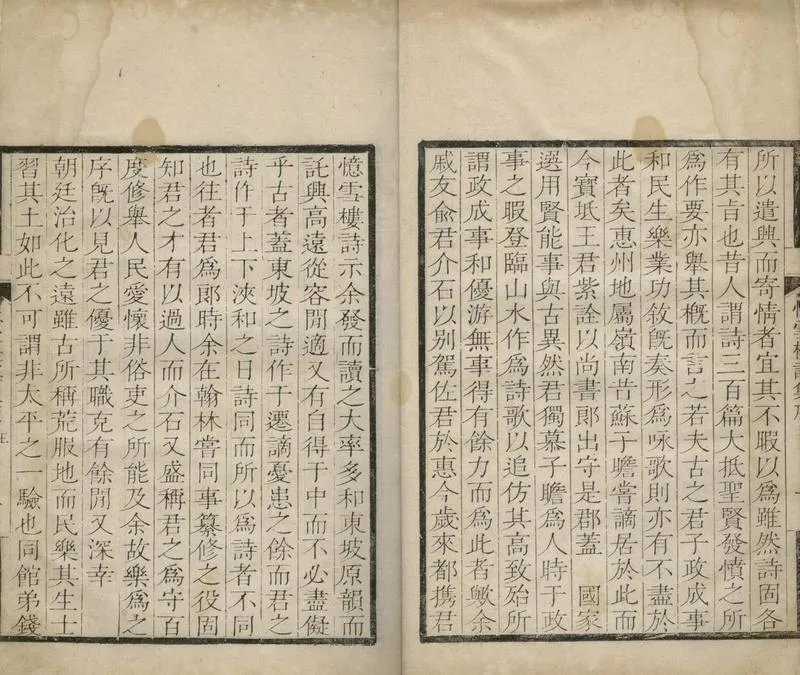 所以遣興而寄情者宜其不暇以爲雖然詩固各
有其旨也昔人謂詩三百篇大抵聖賢發憤之所
爲作要亦舉其概而言之若夫古之君子政成事
和民生樂業功敘旣奏形爲咏歌則亦有不盡於
此者矣惠州地屬嶺南昔蘇子瞻嘗謫居於此而
今寶坻王君紫詮以尚書郎出守是郡蓋 國家
選用賢能事與古異然君獨慕子瞻爲人時于政
事之暇登臨山水作爲詩歌以追仿其高致殆所
謂政成事和優游無事得有餘力而爲此者歟余
戚友兪君介石以别駕佐君於惠今歲來都携君
憶雪樓詩示余發而讀之大率多和東坡原韻而
託興高遠從容閒適又有自得于中而不必盡儗
乎古者蓋東坡之詩作于遷謫憂患之餘而君之
詩作于上下浹和之日詩同而所以爲詩者不同
也往者君爲郎時余在翰林嘗同事纂修之役固
知君之才有以過人而介石又盛稱君之爲守百
度修舉人民愛懷非俗吏之所能及余故樂爲之
序旣以見君之優于其職克有餘閒又深幸
朝廷治化之遠雖古所稱荒服地而民樂其生士
習其土如此不可謂非太平之一驗也同館弟錢